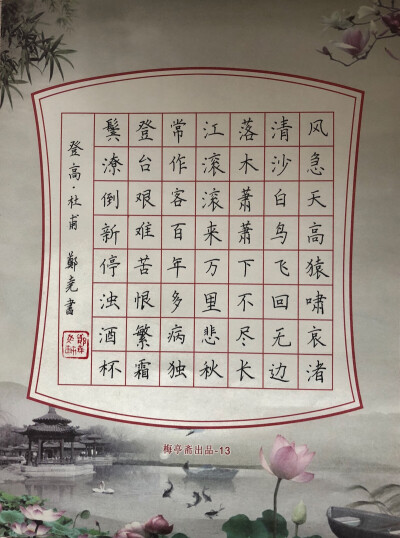 风急天高猿啸哀渚
清沙白鸟飞回无边
落木萧萧下不尽长
江滚滚来万里悲秋
常作客百年多病独
登台艰难苦恨繁霜
鬓潦倒新停浊酒杯
登高·杜甫 鄭尧書
梅亭齋出品-13